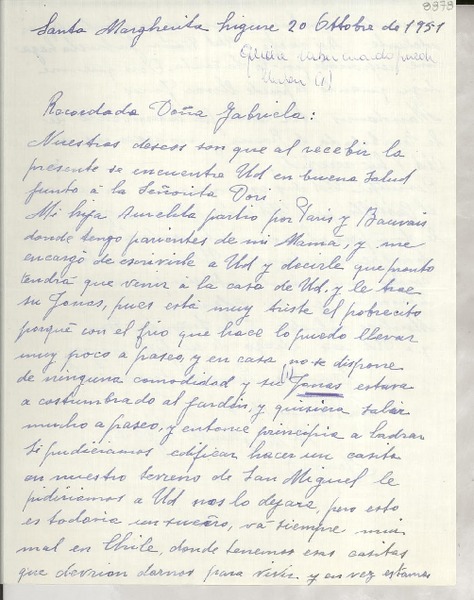 8878
Santa Margherita Ligure 20 Ottobre de 1951
Recordada Doña Gabriela:
Nuestros deseos son que al recebir la
présente se encuentra Ud en buena salud
junto à la Señorita Dori
Mi hija Aurelita partio por Paris y Beauvais
donde tengo parientes de mi Mama, y me
encargó de escrivirle a Ud y decirle que pronto
tendrá que venir à la casa de Ud, y le trae
su Jonas, pues está muy triste el pobrecito
porqué con el frio que hace lo puedo llevar
muy poco a paseo, y en casa no se dispone
de ninguna comodidad y su (1) Jonas estava
acostumbrado al jardin, y quisiera salir
mucho a paseo, y entonce principia a ladrar
Si pudieramos edificar hacer un casita
en nuestro terreno de San Miguel le
pidiriamos a Ud nos lo dejara, pero esto
es todavia un sueño, vá siempre mui
mal en Chile, donde tenemos esas casitas
que devrian darnos para vivir y en vez estamos